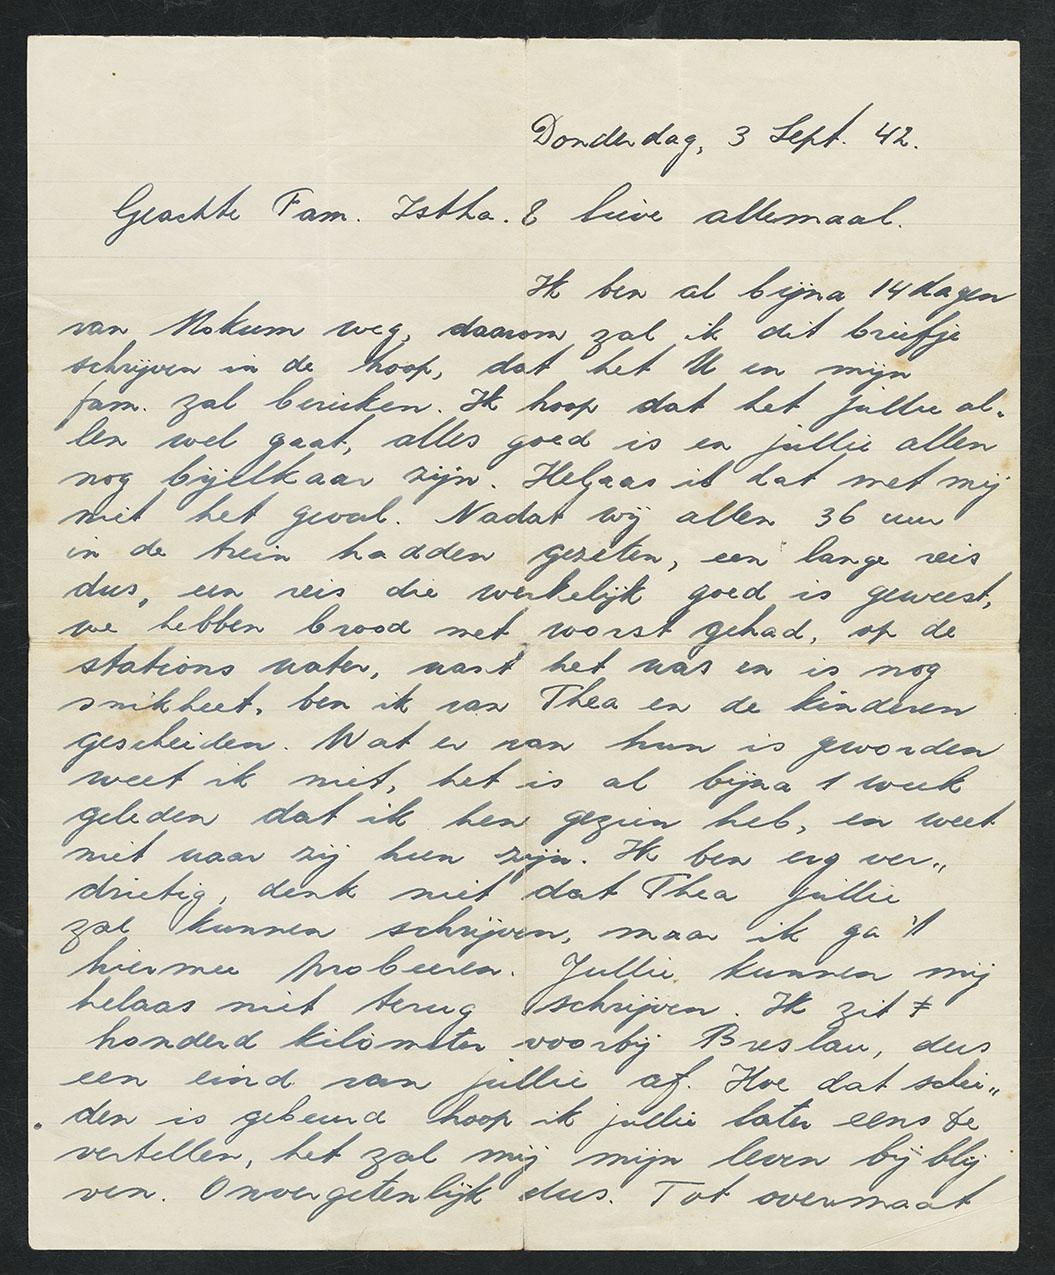 Donderdag, 3 Sept. 42.
Geachte Fam. Istha. & lieve allemaal.
Ik ben al bijna 14 dagen
van Mokum weg, daarom zal ik dit briefje
schrijven in de hoop, dat het U en mijn
fam. zal bereiken. Ik hoop dat het jullie al-
len wel gaat, alles goed is en jullie allen
nog bijelkaar zijn. Helaas is dat met mij
niet het geval. Nadat wij allen 36 uur
in de trein hadden gezeten, een lange reis
dus, een reis die werkelijk goed is geweest,
we hebben brood met worst gehad, op de
stations water, want het was en is nog
snikheet, ben ik van Thea en de kinderen
gescheiden. Wat er van hun is geworden
weet ik niet, het is al bijna 1 week
geleden dat ik hen gezien heb, en weet
niet waar zij heen zijn. Ik ben erg ver„
drietig, denk niet dat Thea jullie
zal kunnen schrijven, maar ik ga 't
hiermee probeeren. Jullie kunnen mij
helaas niet terug schrijven. Ik zit ±
honderd kilometer voorbij Breslau, dus
een eind van jullie af. Hoe dat schei„
den is gebeurd hoop ik jullie later eens te
vertellen, het zal mij mijn leven bij blij
ven. Onvergetenlijk dus. Tot overmaat